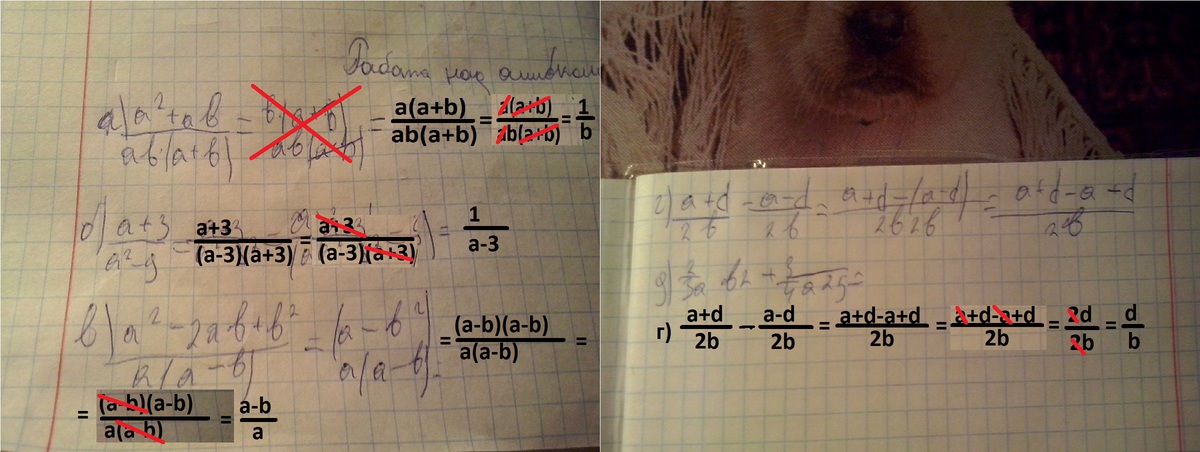 Работа над ошибками
а) a²+ab / ab(a+b) = b(a+b) / ab(a+b) = a(a+b) / ab(a+b) = a(a+b) / ab(a+b) = 1 / b
б) a+3 / a²-9 = a+3 / (a-3)(a+3) = a+3 / (a-3)(a+3) = 1 / a-3
в) a²-2ab+b² / a(a-b) = (a-b²) / a(a-b) = (a-b)(a-b) / a(a-b) =
= (a-b)(a-b) / a(a-b) = a-b / a
г) a+d / 2b - a-d / 2b = a+d-(a-d) / 2b 2b = a+d-a+d / 2b
д)
г) a+d / 2b - a-d / 2b = a+d-a+d / 2b = a+d-a+d / 2b = 2d / 2b = d / b